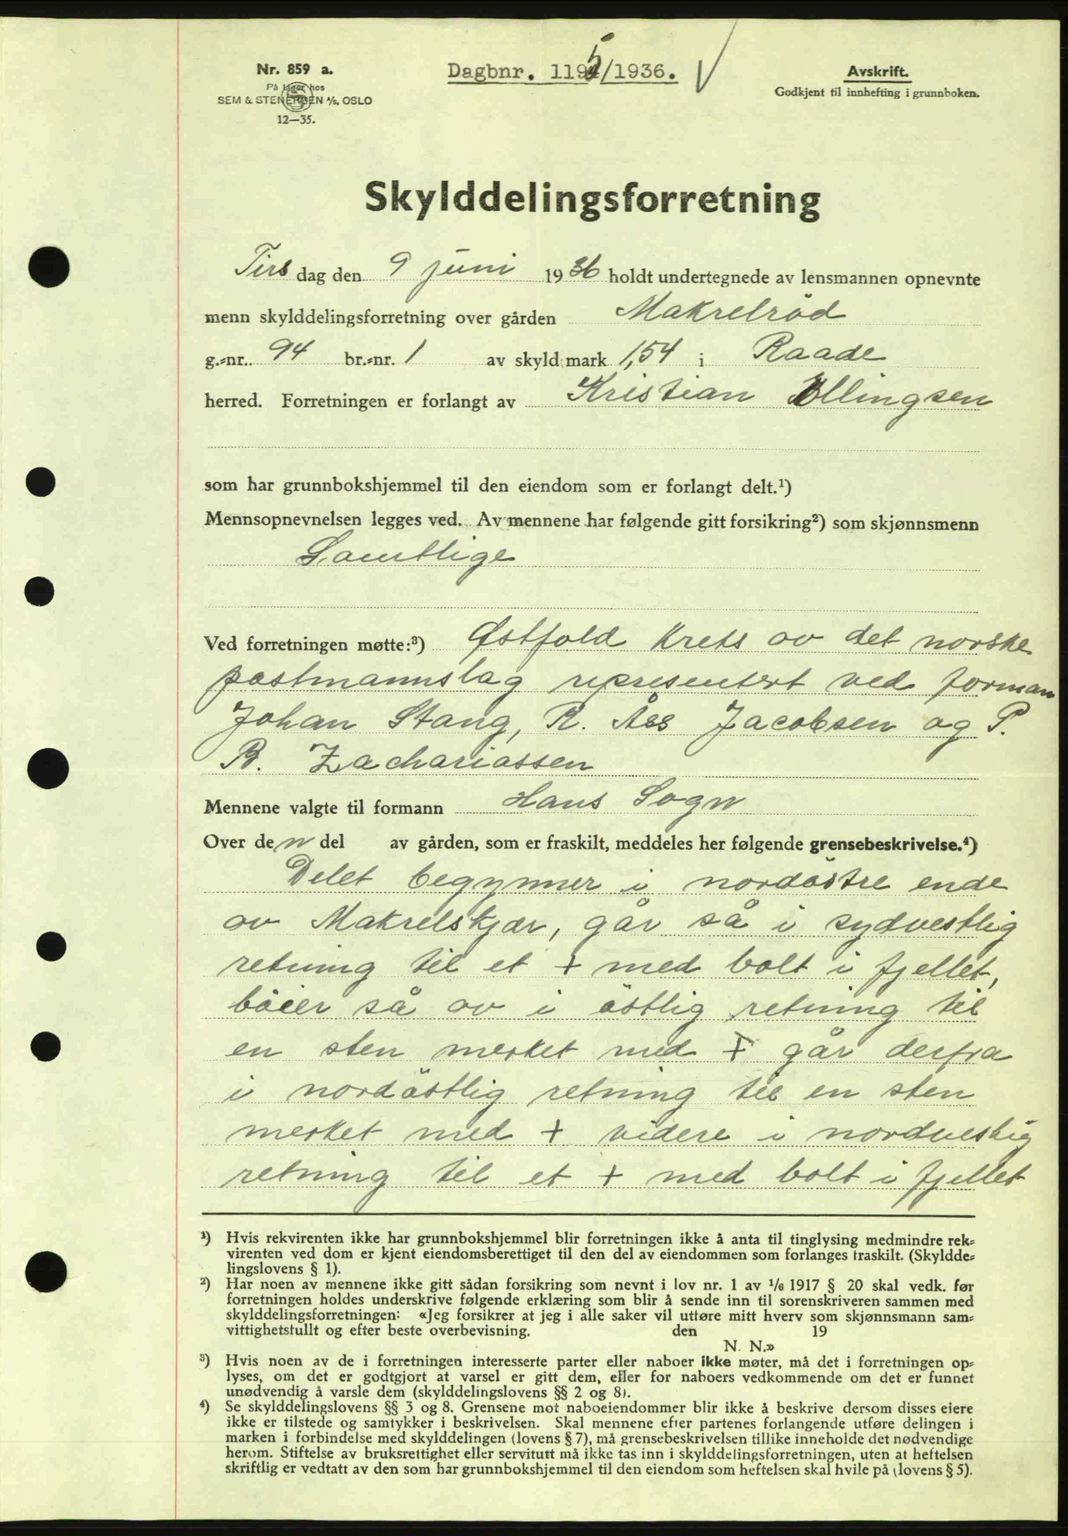 Nr. 859 a.
På lager hos
SEM & STENERSEN A/S, OSLO
12—35.
Dagbnr. 1195/1936.
Avskrift.
Godkjent til innhefting i grunnboken.
Skylddelingsforretning
Tirs dag den 9 juni 1936 holdt undertegnede av lensmannen opnevnte
menn skylddelingsforretning over gården Makrelröd
g.=nr. 94 br.=nr. 1 av skyld mark 1,54 i Raade
herred. Forretningen er forlangt av Kristian Ellingsen
som har grunnbokshjemmel til den eiendom som er forlangt delt.¹)
Mennsopnevnelsen legges ved. Av mennene har følgende gitt forsikring²) som skjønnsmenn
Samtlige
Ved forretningen møtte:³) Østfold Krets av det norske
postmannslag representert ved forman
Johan Stang, R. Ås Jacobsen og P.
B. Zachariassen
Mennene valgte til formann Hans Sogn
Over den del av gården, som er fraskilt, meddeles her følgende grensebeskrivelse.⁴)
Delet begynner i nordöstre ende
av Makrelskjær, går så i sydvestlig
retning til et + med bolt i fjellet,
böier så av i östlig retning til
en sten merket med + går derfra
i nordöstlig retning til en sten
merket med + videre i nordvestlig
retning til et + med bolt i fjellet
¹) Hvis rekvirenten ikke har grunnbokshjemmel blir forretningen ikke å anta til tinglysing medmindre rek=
virenten ved dom er kjent eiendomsberettiget til den del av eiendommen som forlanges fraskilt. (Skyldde=
lingslovens § 1).
²) Har noen av mennene ikke gitt sådan forsikring som nevnt i lov nr. 1 av 1/6 1917 § 20 skal vedk. før
forretningen holdes underskrive følgende erklæring som blir å sende inn til sorenskriveren sammen med
skylddelingsforretningen: «Jeg forsikrer at jeg i alle saker vil utføre mitt hverv som skjønnsmann sam=
vittighetsfullt og efter beste overbevisning. den 19
N. N.»
³) Hvis noen av de i forretningen interesserte parter eller naboer ikke møter, må det i forretningen op=
lyses, om det er godtgjort at varsel er gitt dem, eller for naboers vedkommende om det er funnet
unødvendig å varsle dem (skylddelingslovens §§ 2 og 8).
⁴) Se skylddelingslovens §§ 3 og 8. Grensene mot naboeiendommer blir ikke å beskrive dersom disses eiere
ikke er tilstede og samtykker i beskrivelsen. Skal mennene efter partenes forlangende utføre delingen i
marken i forbindelse med skylddelingen (lovens § 7), må grensebeskrivelsen tillike inneholde det nødvendige
herom. Stiftelse av bruksrettighet eller servitutt må ikke tas inn i skylddelingsforretningen, uten at heftelsen
skriftlig er vedtatt av den som har grunnbokshjemmel til den eiendom som heftelsen skal hvile på (lovens § 5).